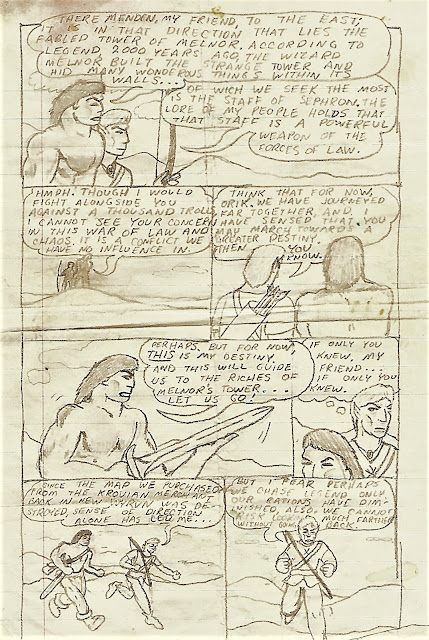 THERE MENDEN, MY FRIEND, TO THE EAST;
IT IS IN THAT DIRECTION THAT LIES THE
FABLED TOWER OF MELNOR. ACCORDING TO
LEGEND, 2000 YEARS AGO, THE WIZARD
MELNOR BUILT THE STRANGE TOWER AND
HID MANY WONDEROUS THINGS WITHIN ITS
WALLS...
OF WICH WE SEEK THE MOST
IS THE STAFF OF SEPHRON. THE
LORE OF MY PEOPLE HOLDS THAT
THAT STAFF IS A POWERFUL
WEAPON OF THE
FORCES OF LAW.
HMPH. THOUGH I WOULD
FIGHT ALONGSIDE YOU
AGAINST A THOUSAND TROLLS,
I CANNOT SEE YOUR CONCERN
IN THIS WAR OF LAW AND
CHAOS. IT IS A CONFLICT WE
HAVE NO INFLUENCE IN.
THINK THAT FOR NOW,
ORIK. WE HAVE JOURNEYED
FAR TOGETHER, AND, I
HAVE SENSED THAT YOU
MAY MARCH TOWARDS A
GREATER DESTINY.
THEN YOU
KNOW.
PERHAPS. BUT FOR NOW,
THIS IS MY DESTINY.
AND THIS WILL GUIDE
US TO THE RICHES OF
MELNOR'S TOWER...
LET US GO!
IF ONLY YOU
KNEW, MY
FRIEND...
IF ONLY YOU
KNEW.
SINCE THE MAP WE PURCHASED
FROM THE KROVIAN MERCHANT
BACK IN NEW WAS DE-
STROYED, SENSE OF DIRECTION
ALONE HAS LED ME...
BUT I FEAR PERHAPS
WE CHASE LEGEND ONLY.
OUR RATIONS HAVE DIM-
INISHED, ALSO. WE CANNOT
MUCH FARTHER
WITHOUT GOING BACK.